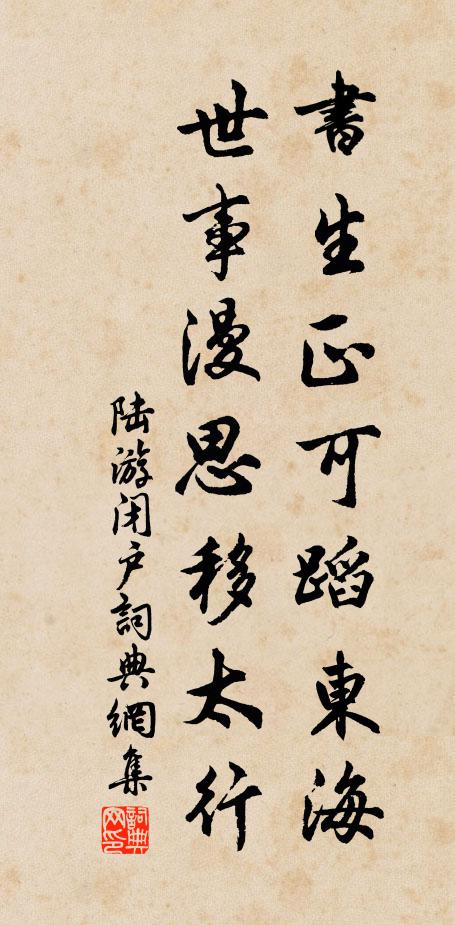 書生正可蹈東海
世事漫思移太行
陆游闭户詞典網集
詞典网印